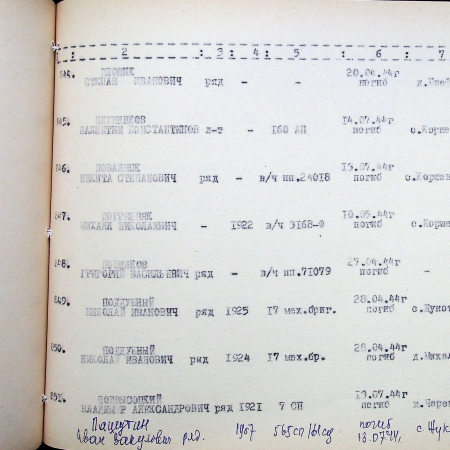 : 2 : 3: 4: 5 : 6 : 7
844. 20.04.44г
СТЕПАН ИВАНОВИЧ ряд - - погиб
845. ПЛУЖНИКОВ 14.07.44г
ВАЛЕНТИН КОНСТАНТИНОВ л-т - 160 АП погиб с.Корша
846. ПОВАЛЯЕВ 15.07.44г
НИКИТА СТЕПАНОВИЧ ряд - в/ч пп.24018 погиб с.Коршан
847. ПОГРЕБНЯК 10.05.44г
МИХАИЛ НИКОЛАЕВИЧ - 1922 в/ч 3168-Ф погиб с.Корша
848. 27.04.44г
ГРИГОРИЙ ВАСИЛЬЕВИЧ ряд - в/ч пп.71079 погиб -
849. ПОДДУБНЫЙ 28.04.44г
НИКОЛАЙ ИВАНОВИЧ ряд 1925 17 мех.бриг. погиб
850. ПОДДУБНЫЙ 28.04.44г
НИКОЛАЙ ИВАНОВИЧ ряд 1924 17 мех.бр. погиб д.Михал
851. 13.07.44г
ВЛАДИМИР АЛЕКСАНДРОВИЧ ряд 1921 7 СП погиб
Пашутин погиб
Иван Вакулович ряд. 1907 565сп/161сд 13.07.44г. с.Жук